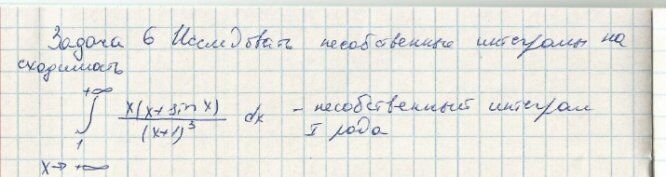 Задача 6 Исследовать несобственные интегралы на
сходимость
+∞
∫ x(x+sin x) / (x+1)³ dx - несобственный интеграл
1
I рода
x→ +∞